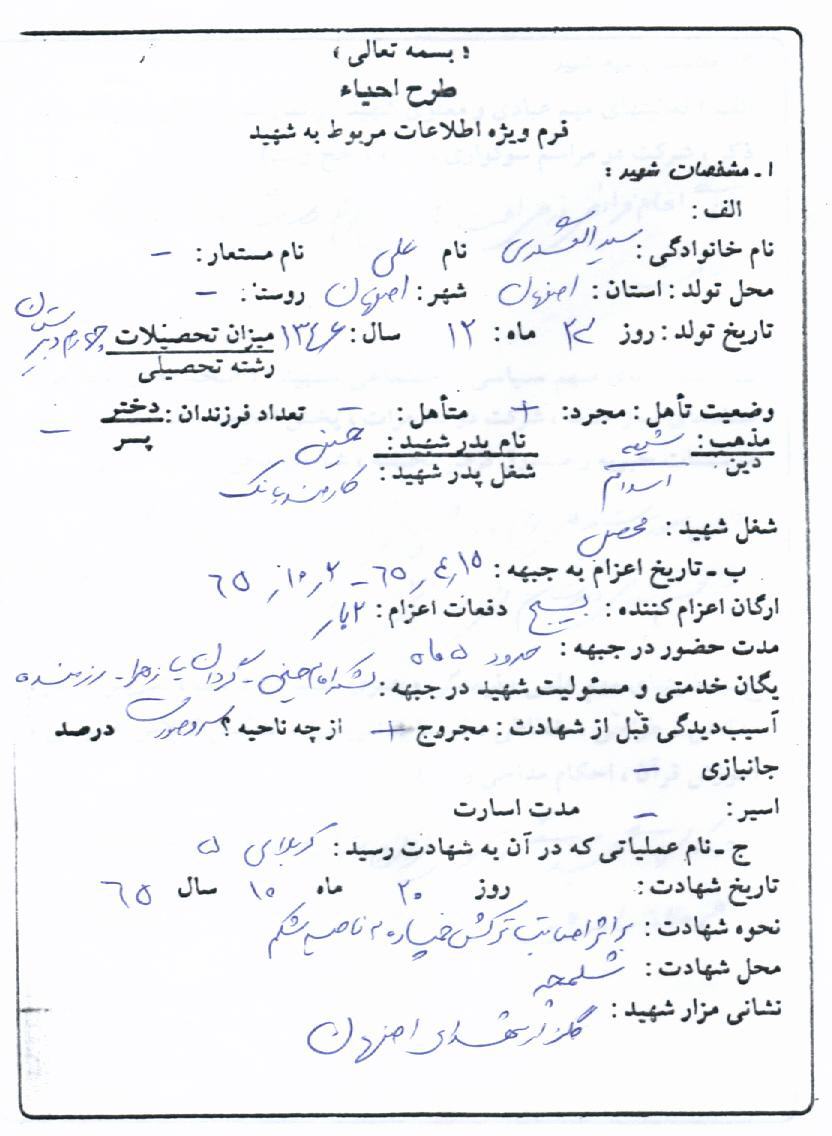 « بسمه تعالی »
طرح احیاء
فرم ویژه اطلاعات مربوط به شهید
۱ ـ مشخصات شهید :
الف :
نام خانوادگی : نام علی نام مستعار : –
محل تولد : استان : اصفهان شهر : اصفهان روستا : –
تاریخ تولد : روز ۲۳ ماه : ۱۲ سال : ۱۳۴۶ میزان تحصیلات چهارم دبیرستان
رشته تحصیلی
وضعیت تأهل : مجرد : + متأهل : – تعداد فرزندان : دختر –
مذهب : شیعه نام پدر شهید : حسین پسر
دین اسلام شغل پدر شهید : کارمند بانک
شغل شهید : محصل
ب ـ تاریخ اعزام به جبهه : ۱۵ ر ٤ ر ٦٥ – ۲ ر ۱۰ ر ٦٥
ارگان اعزام کننده : بسیج دفعات اعزام : ۲ بار
مدت حضور در جبهه : حدود ۵ ماه
یگان خدمتی و مسئولیت شهید در جبهه : لشکر امام حسین – گردان یا زهرا – رزمنده
آسیب‌دیدگی قبل از شهادت : مجروح + از چه ناحیه ؟ سر و صورت درصد
جانبازی –
اسیر : – مدت اسارت
ج ـ نام عملیاتی که در آن به شهادت رسید : کربلای ۵
تاریخ شهادت : روز ۲۰ ماه ۱۰ سال ٦٥
نحوه شهادت : بر اثر اصابت ترکش خمپاره به ناحیه شکم
محل شهادت : شلمچه
نشانی مزار شهید : گلزار شهدای اصفهان